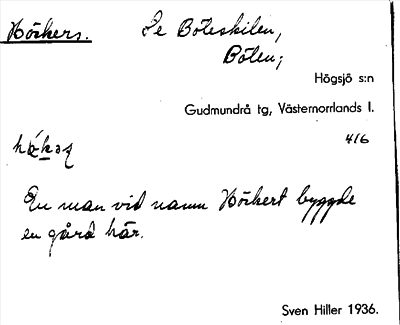 Höckers. Se Böleskilen,
Bölen;
Högsjö s:n
Gudmundrå tg, Västernorrlands l.
416
En man vid namn Höckert byggde
en gård här.
Sven Hiller 1936.